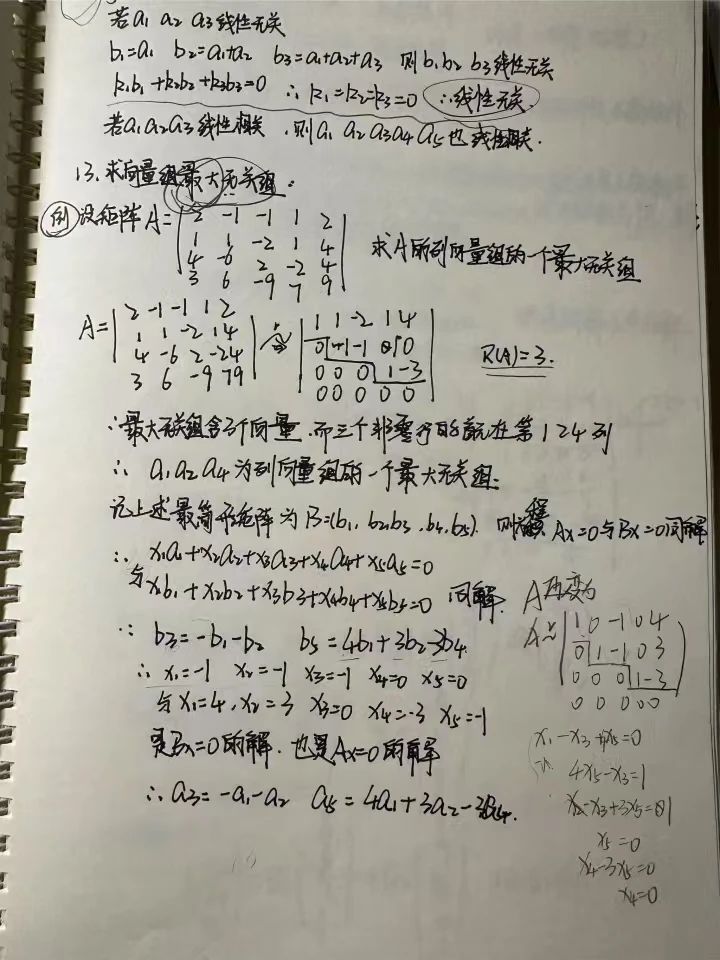 若a1 a2 a3线性无关
b1=a1 b2=a1+a2 b3=a1+a2+a3 则b1 b2 b3线性无关
k1b1+k2b2+k3b3=0 ∴k1=k2=k3=0 ∴线性无关.
若a1a2a3线性相关,则a1 a2 a3 a4 a5也线性相关.
13、求向量组最大无关组:
例 设矩阵A=
2 -1 -1 1 2
1 1 -2 1 4
4 -6 2 -2 4
3 6 -9 7 9
求A的列向量组的一个最大无关组
A=
2 -1 -1 1 2
1 1 -2 1 4
4 -6 2 -2 4
3 6 -9 7 9
~
1 1 -2 1 4
0 1 -1 1 0
0 0 0 1 -3
0 0 0 0 0
R(A)=3.
∴最大无关组含3个向量.而三个非零行的首元在第1 2 4列
∴ a1 a2 a4为列向量组的一个最大无关组.
记上述最简形矩阵为B=(b1, b2, b3, b4, b5). 则方程 Ax=0与Bx=0同解
∴ x1a1+x2a2+x3a3+x4a4+x5a5=0
与x1b1+x2b2+x3b3+x4b4+x5b5=0 同解.
∵ b3=-b1-b2 b5=4b1+3b2-3b4
∴ x1=-1 x2=-1 x3=-1 x4=0 x5=0
与x1=4,x2=3 x3=0 x4=-3 x5=-1
是Bx=0的解.也是Ax=0的解
∴ a3=-a1-a2 a5=4a1+3a2-3a4.
A再变为
A~
1 0 -1 0 4
0 1 -1 0 3
0 0 0 1 -3
0 0 0 0 0
x1-x3+4x5=0
4x5-x3=1
x2-x3+3x5=0
x5=0
x4-3x5=0
x4=0